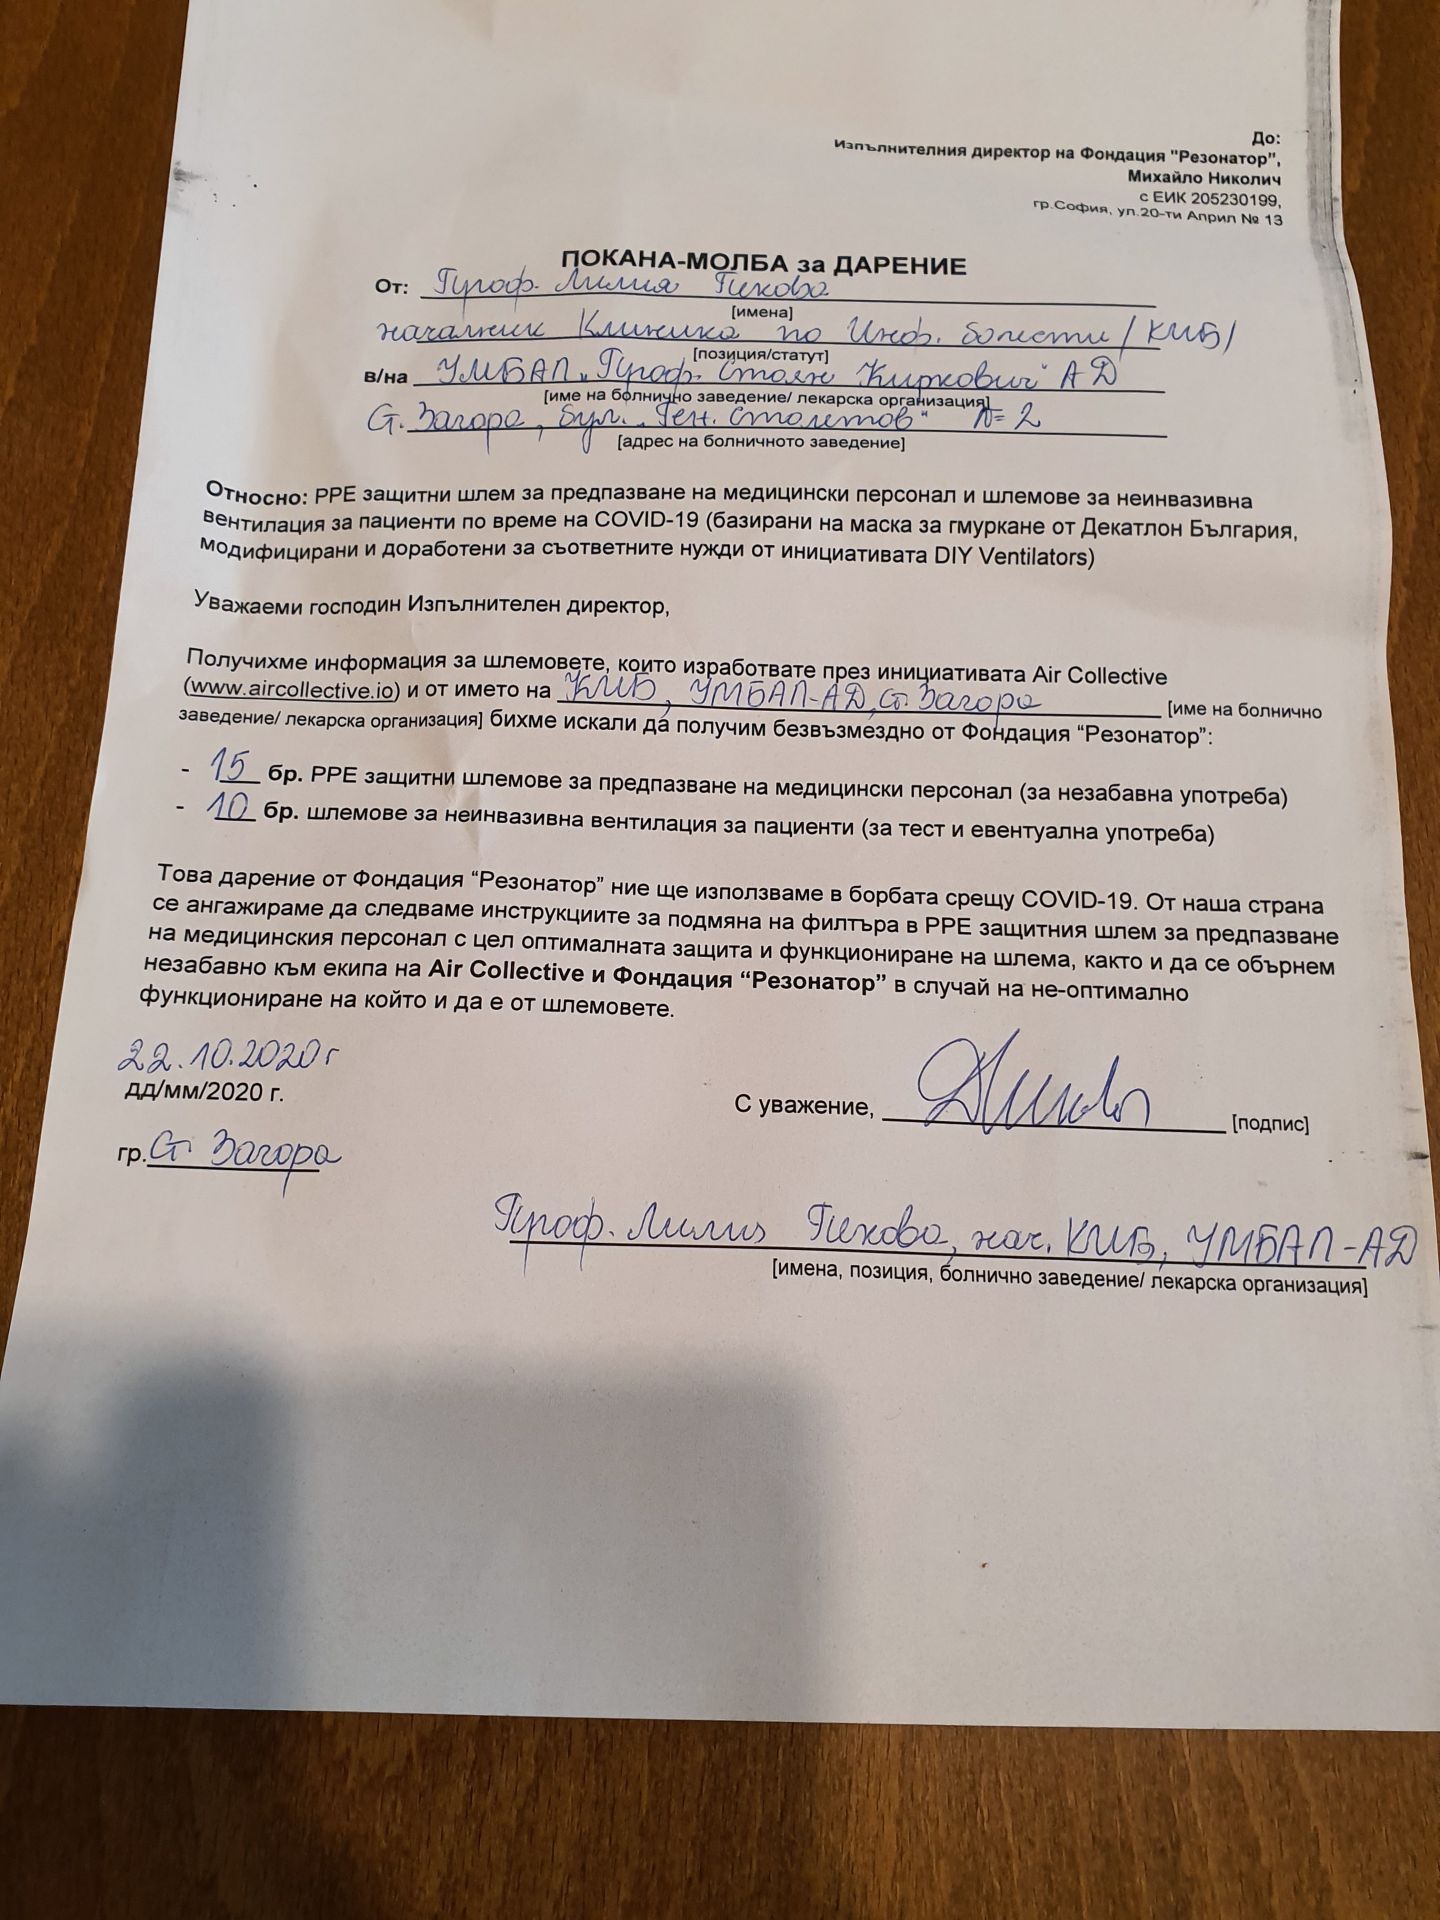 До:
Изпълнителния директор на Фондация "Резонатор",
Михайло Николич
с ЕИК 205230199,
гр.София, ул.20-ти Април № 13
ПОКАНА-МОЛБА за ДАРЕНИЕ
От: Проф. Лилия Пекова
[имена]
началник Клиника по Инф. болести /КИБ/
[позиция/статут]
в/на УМБАЛ „Проф. Стоян Киркович" АД
[име на болнично заведение/ лекарска организация]
Ст. Загора, бул. „Ген. Столетов" № 2
[адрес на болничното заведение]
Относно: PPE защитни шлем за предпазване на медицински персонал и шлемове за неинвазивна
вентилация за пациенти по време на COVID-19 (базирани на маска за гмуркане от Декатлон България,
модифицирани и доработени за съответните нужди от инициативата DIY Ventilators)
Уважаеми господин Изпълнителен директор,
Получихме информация за шлемовете, които изработвате през инициативата Air Collective
(www.aircollective.io) и от името на КИБ, УМБАЛ-АД, Ст. Загора [име на болнично
заведение/ лекарска организация] бихме искали да получим безвъзмездно от Фондация “Резонатор”:
- 15 бр. PPE защитни шлемове за предпазване на медицински персонал (за незабавна употреба)
- 10 бр. шлемове за неинвазивна вентилация за пациенти (за тест и евентуална употреба)
Това дарение от Фондация “Резонатор” ние ще използваме в борбата срещу COVID-19. От наша страна
се ангажираме да следваме инструкциите за подмяна на филтъра в PPE защитния шлем за предпазване
на медицинския персонал с цел оптималната защита и функциониране на шлема, както и да се обърнем
незабавно към екипа на Air Collective и Фондация “Резонатор” в случай на не-оптимално
функциониране на който и да е от шлемовете.
22.10.2020г
дд/мм/2020 г.
С уважение, [подпис]
гр. Ст. Загора
Проф. Лилия Пекова, нач. КИБ, УМБАЛ-АД
[имена, позиция, болнично заведение/ лекарска организация]